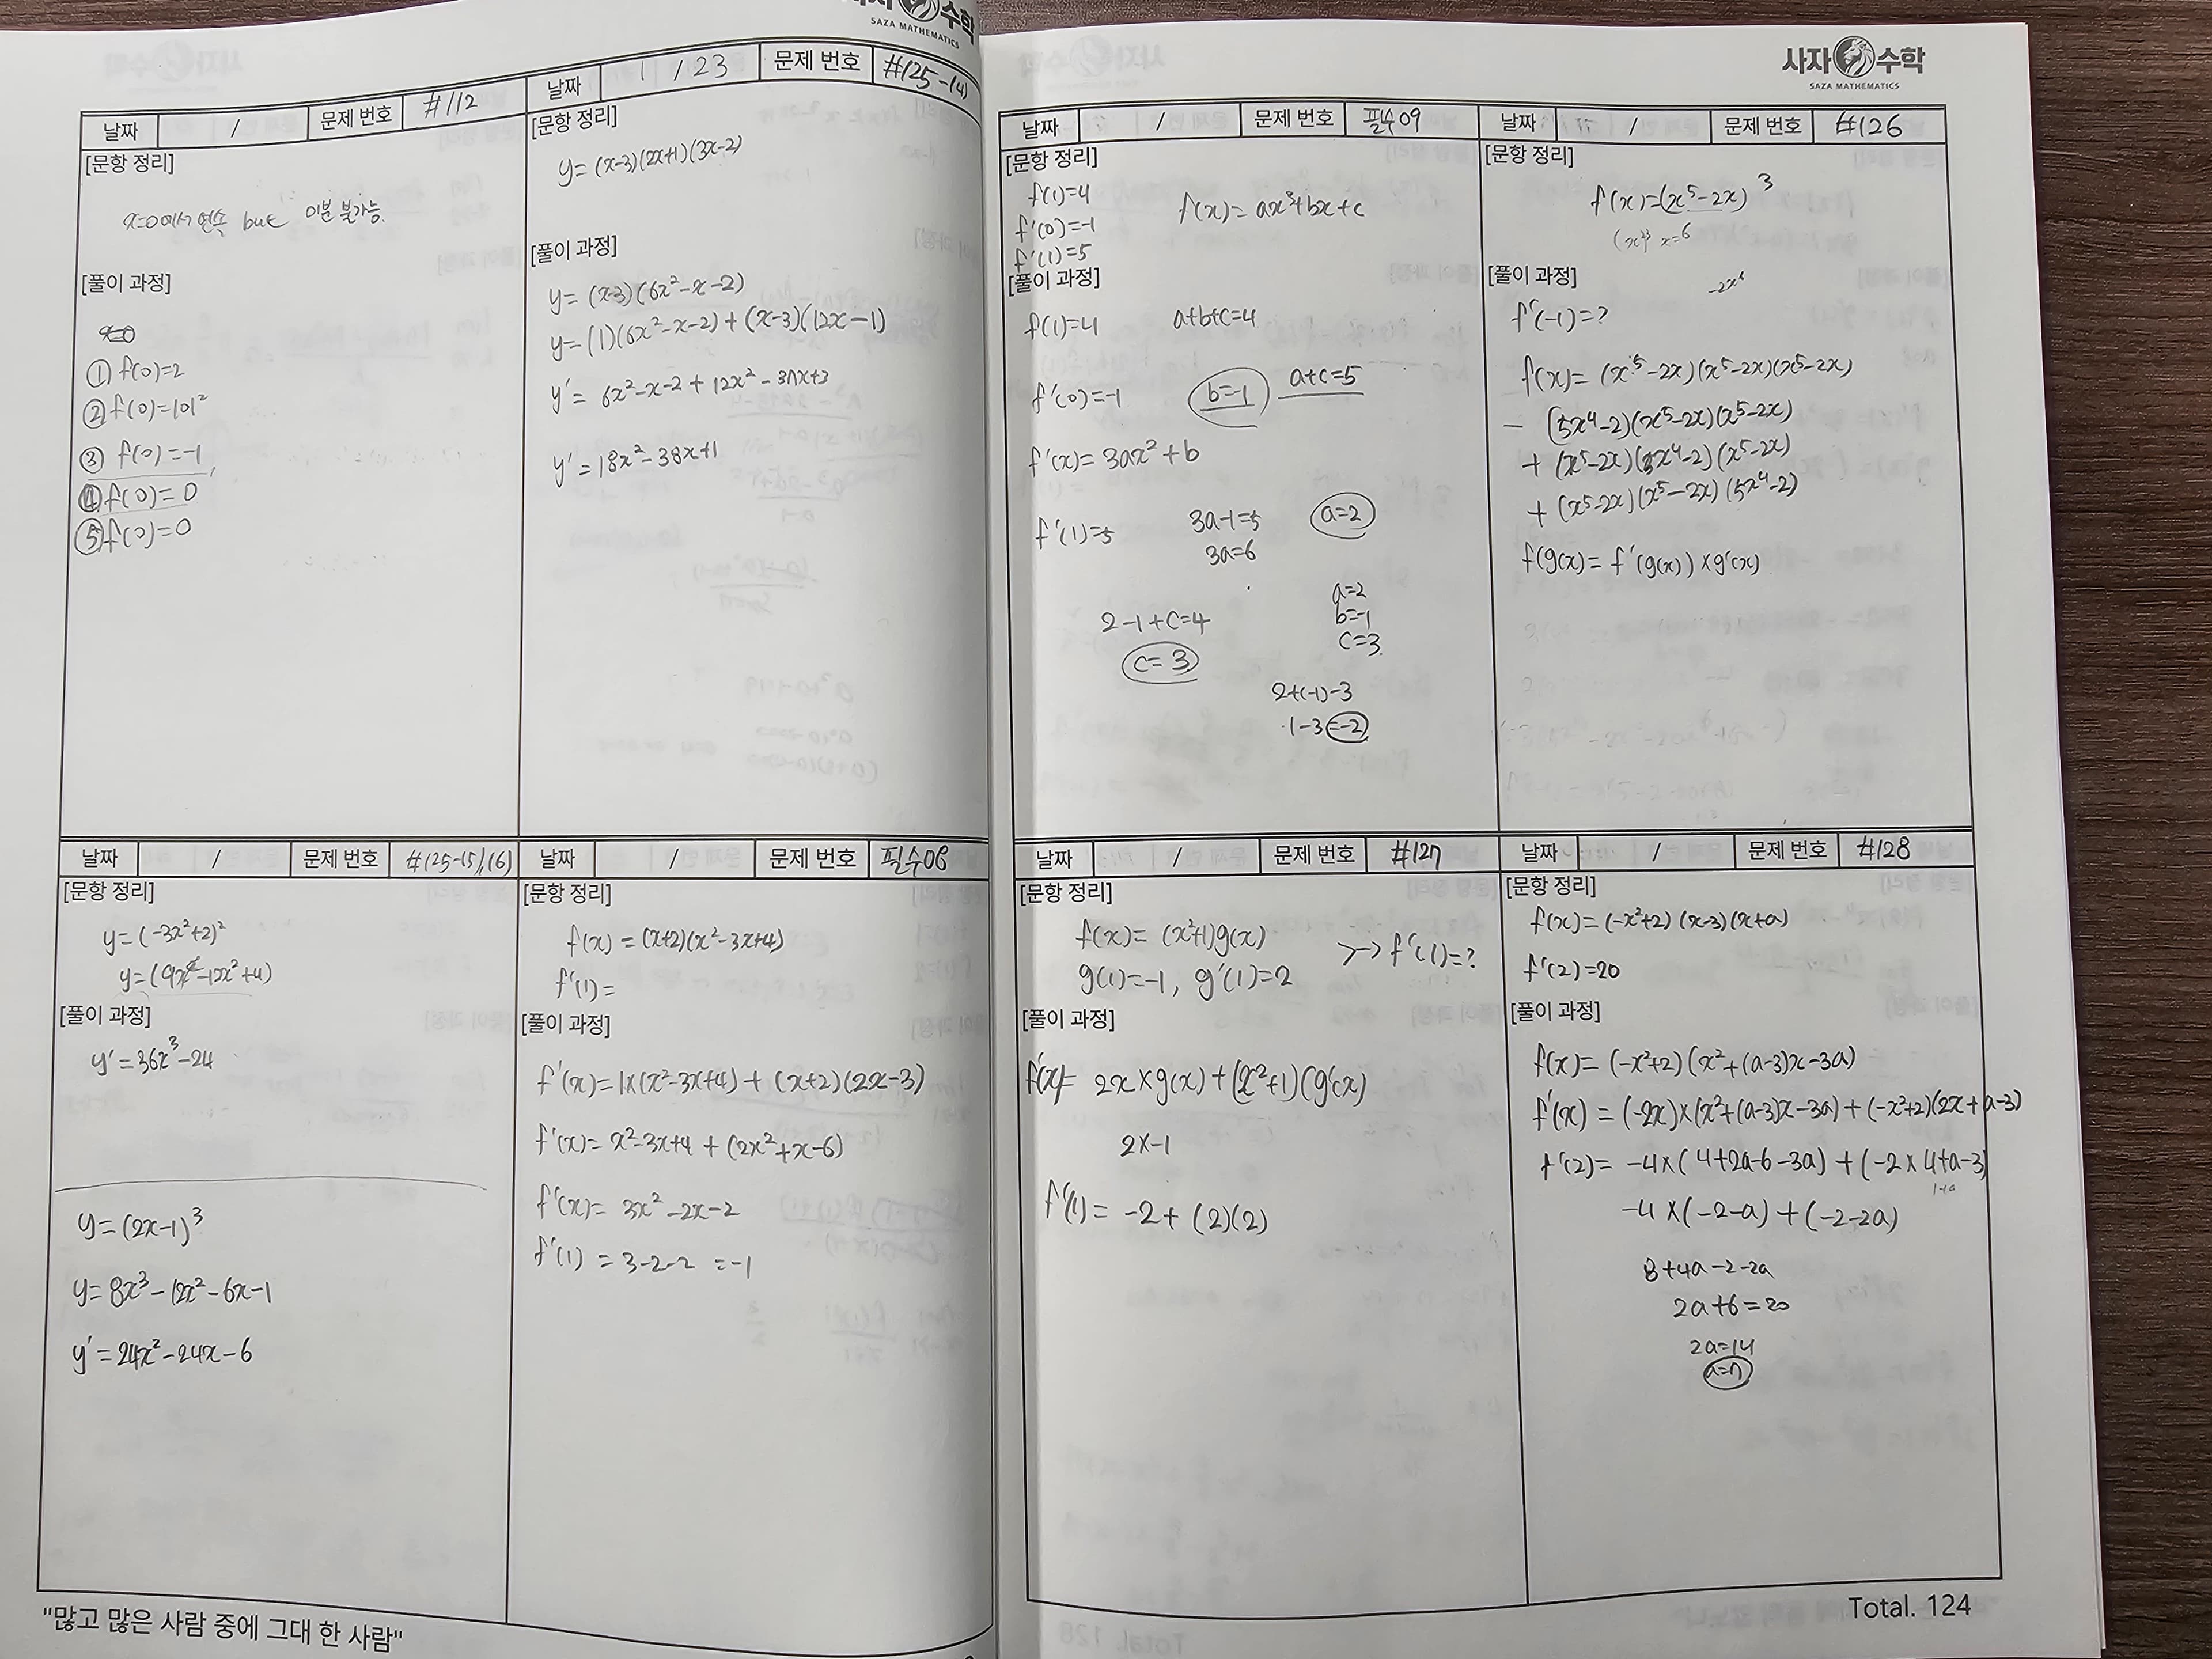 사자 수학
SAZA MATHEMATICS
날짜 / 문제 번호 #112
[문항 정리]
x=0에서 연속 but 미분 불가능.
[풀이 과정]
① f(0)=2
② f(0)=|0|²
③ f(0)=-1
④ f(0)=0
⑤ f(0)=0
날짜 1/23 문제 번호 #125-14)
[문항 정리]
y=(x-3)(2x+1)(3x-2)
[풀이 과정]
y=(x-3)(6x²-x-2)
y=(1)(6x²-x-2)+(x-3)(12x-1)
y'= 6x²-x-2+12x²-37x+3
y'=18x²-38x+1
날짜 / 문제 번호 #125-15),16)
[문항 정리]
y=(-3x²+2)²
y=(9x⁴-12x²+4)
[풀이 과정]
y'=36x³-24
y=(2x-1)³
y=8x³-12x²-6x-1
y'=24x²-24x-6
날짜 / 문제 번호 필수08
[문항 정리]
f(x)=(x+2)(x²-3x+4)
f'(1)=
[풀이 과정]
f'(x)=1×(x²-3x+4)+(x+2)(2x-3)
f'(x)=x²-3x+4+(2x²+x-6)
f'(x)=3x²-2x-2
f'(1)=3-2-2 =-1
"많고 많은 사람 중에 그대 한 사람"
사자 수학
SAZA MATHEMATICS
날짜 / 문제 번호 필수09
[문항 정리]
f(1)=4
f(x)=ax³+bx+c
f'(0)=-1
f'(1)=5
[풀이 과정]
f(1)=4 a+b+c=4
f'(0)=-1 b=-1 a+c=5
f'(x)=3ax²+b
f'(1)=5 3a-1=5 a=2
3a=6
a=2
b=-1
c=3
2-1+c=4
c=3
2+(-1)-3
1-3=-2
날짜 / 문제 번호 #126
[문항 정리]
f(x)=(x⁵-2x)³
[풀이 과정]
-2x⁶
f'(-1)=?
f(x)=(x⁵-2x)(x⁵-2x)(x⁵-2x)
- (5x⁴-2)(x⁵-2x)(x⁵-2x)
+(x⁵-2x)(5x⁴-2)(x⁵-2x)
+(x⁵-2x)(x⁵-2x)(5x⁴-2)
f(g(x)=f'(g(x))×g'(x)
날짜 / 문제 번호 #127
[문항 정리]
f(x)=(x²+1)g(x)
g(1)=-1, g'(1)=2
f'(1)=?
[풀이 과정]
f'(x)= 2x×g(x)+(x²+1)(g'(x)
2×-1
f'(1)=-2+(2)(2)
날짜 / 문제 번호 #128
[문항 정리]
f(x)=(-x²+2)(x-3)(x+a)
f'(2)=20
[풀이 과정]
f(x)=(-x²+2)(x²+(a-3)x-3a)
f'(x)=(-2x)×(x²+(a-3)x-3a)+(-x²+2)(2x+a-3)
f'(2)=-4×(4+2a-6-3a)+(-2×4+a-3)
1+a
-4×(-2-a)+(-2-2a)
8+4a-2-2a
2a+6=20
2a=14
a=7
Total. 124